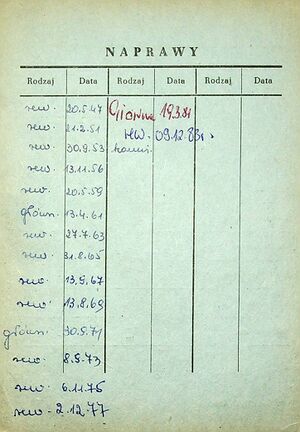 NAPRAWY
Rodzaj Data Rodzaj Data Rodzaj Data
rew. 20.5.47 Główna 19.3.81
rew. 21.2.51 rew. 09.12.83r.
rew. 30.9.53
rew. 13.11.56
rew. 20.5.59
główn. 13.4.61
rew. 27.7.63
rew. 31.8.65
rew. 13.9.67
rew. 13.8.69
główn. 30.9.71
rew. 8.9.73
rew. 6.11.75
rew. 2.12.77